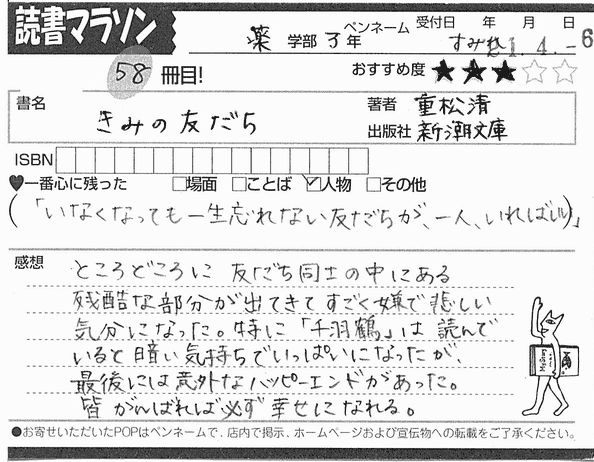 読書マラソン
薬 学部 3年 ペンネーム すみれ 受付日 年 月 日
21.4.-6
58 冊目! おすすめ度 ★★★☆☆
書名 きみの友だち
著者 重松清
出版社 新潮文庫
ISBN
♥一番心に残った □場面 □ことば ☑人物 □その他
(「いなくなっても一生忘れない友だちが、一人、いればいい」)
感想
ところどころに 友だち同士の中にある
残酷な部分が出てきてすごく嫌で悲しい
気分になった。特に「千羽鶴」は 読んで
いると暗い気持ちでいっぱいになったが、
最後には意外なハッピーエンドがあった。
皆 がんばれば必ず幸せになれる。
●お寄せいただいたPOPはペンネームで、店内で掲示、ホームページおよび宣伝物への転載をご了承ください。